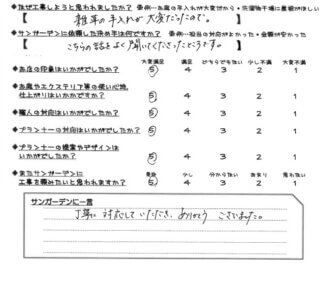 ◆なぜ工事しようと思われましたか？ 事例→お庭の手入れが大変だから・洗濯物干場に屋根がほしい
【 雑草の手入れが大変だったので。 】
◆サンガーデンに依頼した決め手は何ですか？ 事例→担当の対応がよかった・金額が安かった
【 こちらの話をよく聞いてくださったところです。 】
大変満足 満足 どちらでもない 少し不満 大変不満
◆お店の印象はいかがでしたか？ 5 4 3 2 1
◆お庭やエクステリア等の使い心地、
仕上がりはいかがですか？ 5 4 3 2 1
◆職人の対応はいかがでしたか？ 5 4 3 2 1
◆プランナーの対応はいかがでしたか？ 5 4 3 2 1
◆プランナーの提案やデザインは
いかがでしたか？ 5 4 3 2 1
◆またサンガーデンに 是非 少し 分からない あまり 思わない
工事を頼みたいと思われますか？ 5 4 3 2 1
サンガーデンに一言
丁寧に対応していただき、ありがとうございました。